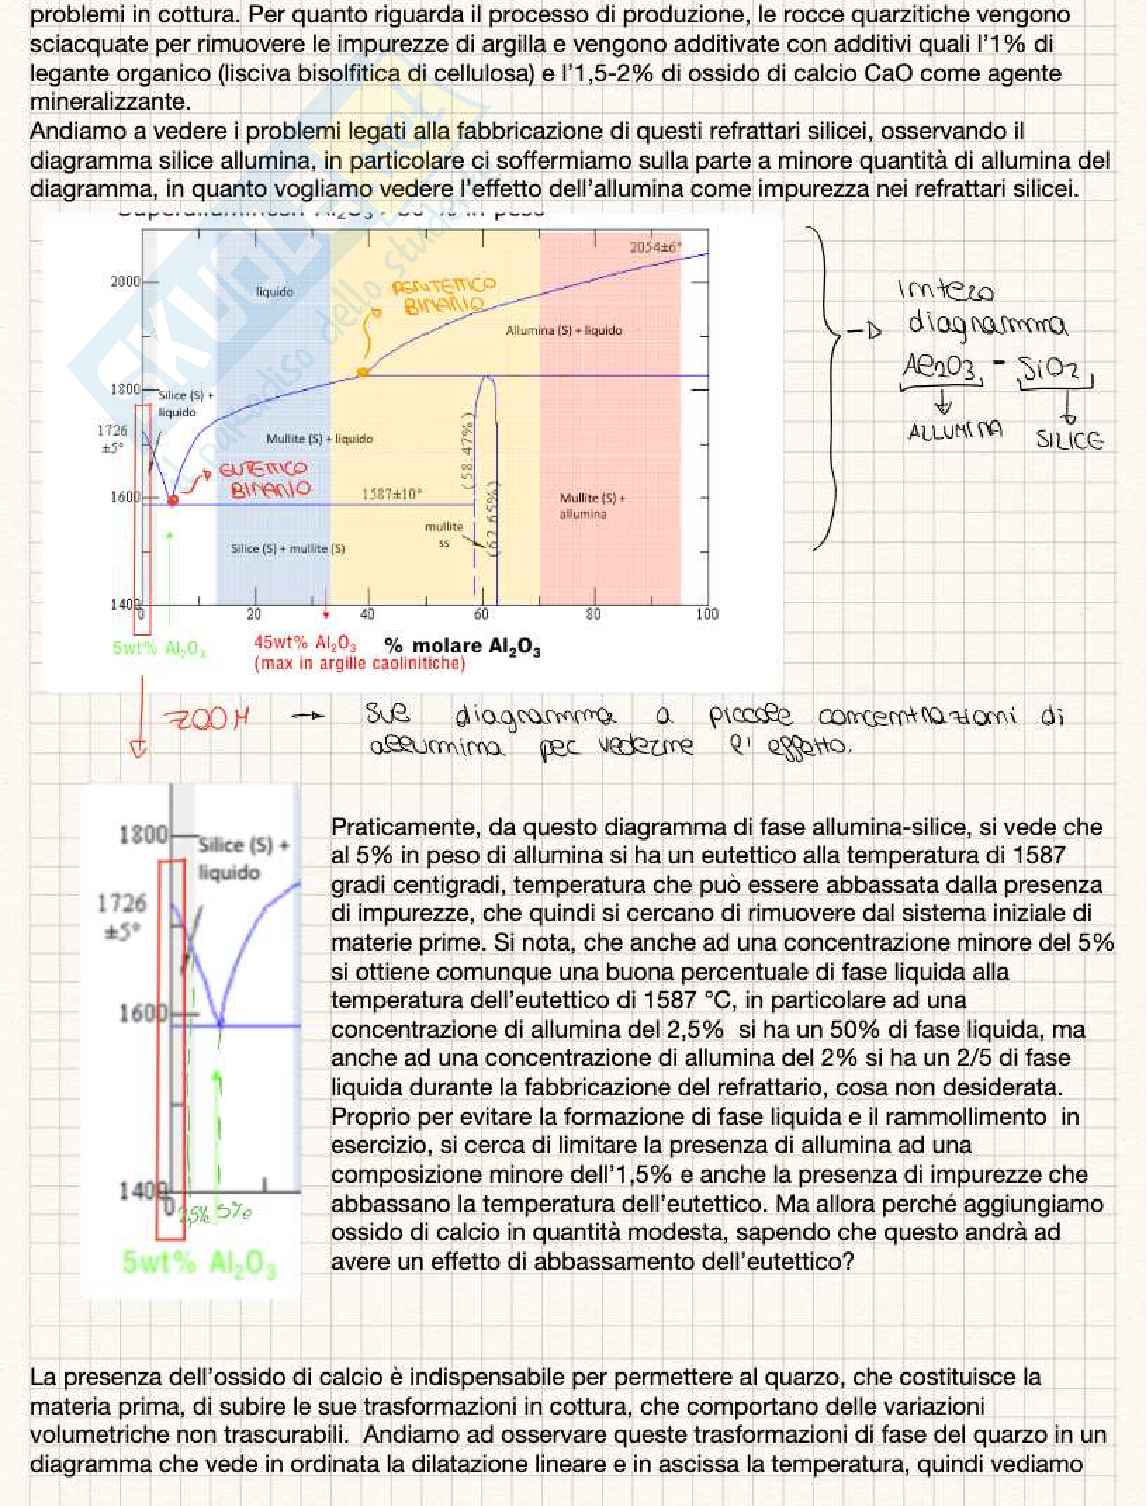 problemi in cottura. Per quanto riguarda il processo di produzione, le rocce quarzitiche vengono
sciacquate per rimuovere le impurezze di argilla e vengono additivate con additivi quali l'1% di
legante organico (lisciva bisolfitica di cellulosa) e l'1,5-2% di ossido di calcio CaO come agente
mineralizzante.
Andiamo a vedere i problemi legati alla fabbricazione di questi refrattari silicei, osservando il
diagramma silice allumina, in particolare ci soffermiamo sulla parte a minore quantità di allumina del
diagramma, in quanto vogliamo vedere l'effetto dell'allumina come impurezza nei refrattari silicei.
2054±6°
2000
liquido
PERITETTICO
BINARIO
Allumina (S) + liquido
intero
diagramma
Al2O3 - SiO2
ALLUMINA
SILICE
1800
Silice (S) +
liquido
1726
±5°
Mullite (S) + liquido
(58.47%)
EUTETTICO
BINARIO
1600
1587±10°
(62.65%)
Mullite (S) +
allumina
mullite
ss
Silice (S) + mullite (S)
1400
0 20 40 60 80 100
5wt% Al2O3
45wt% Al2O3
(max in argille caolinitiche)
% molare Al2O3
ZOOM → sul diagramma a piccole concentrazioni di
allumina per vederne l' effetto.
1800
Silice (S) +
liquido
1726
±5°
1600
1400
0 2,5% 5%
5wt% Al2O3
Praticamente, da questo diagramma di fase allumina-silice, si vede che
al 5% in peso di allumina si ha un eutettico alla temperatura di 1587
gradi centigradi, temperatura che può essere abbassata dalla presenza
di impurezze, che quindi si cercano di rimuovere dal sistema iniziale di
materie prime. Si nota, che anche ad una concentrazione minore del 5%
si ottiene comunque una buona percentuale di fase liquida alla
temperatura dell'eutettico di 1587 °C, in particolare ad una
concentrazione di allumina del 2,5% si ha un 50% di fase liquida, ma
anche ad una concentrazione di allumina del 2% si ha un 2/5 di fase
liquida durante la fabbricazione del refrattario, cosa non desiderata.
Proprio per evitare la formazione di fase liquida e il rammollimento in
esercizio, si cerca di limitare la presenza di allumina ad una
composizione minore dell'1,5% e anche la presenza di impurezze che
abbassano la temperatura dell'eutettico. Ma allora perché aggiungiamo
ossido di calcio in quantità modesta, sapendo che questo andrà ad
avere un effetto di abbassamento dell'eutettico?
La presenza dell'ossido di calcio è indispensabile per permettere al quarzo, che costituisce la
materia prima, di subire le sue trasformazioni in cottura, che comportano delle variazioni
volumetriche non trascurabili. Andiamo ad osservare queste trasformazioni di fase del quarzo in un
diagramma che vede in ordinata la dilatazione lineare e in ascissa la temperatura, quindi vediamo